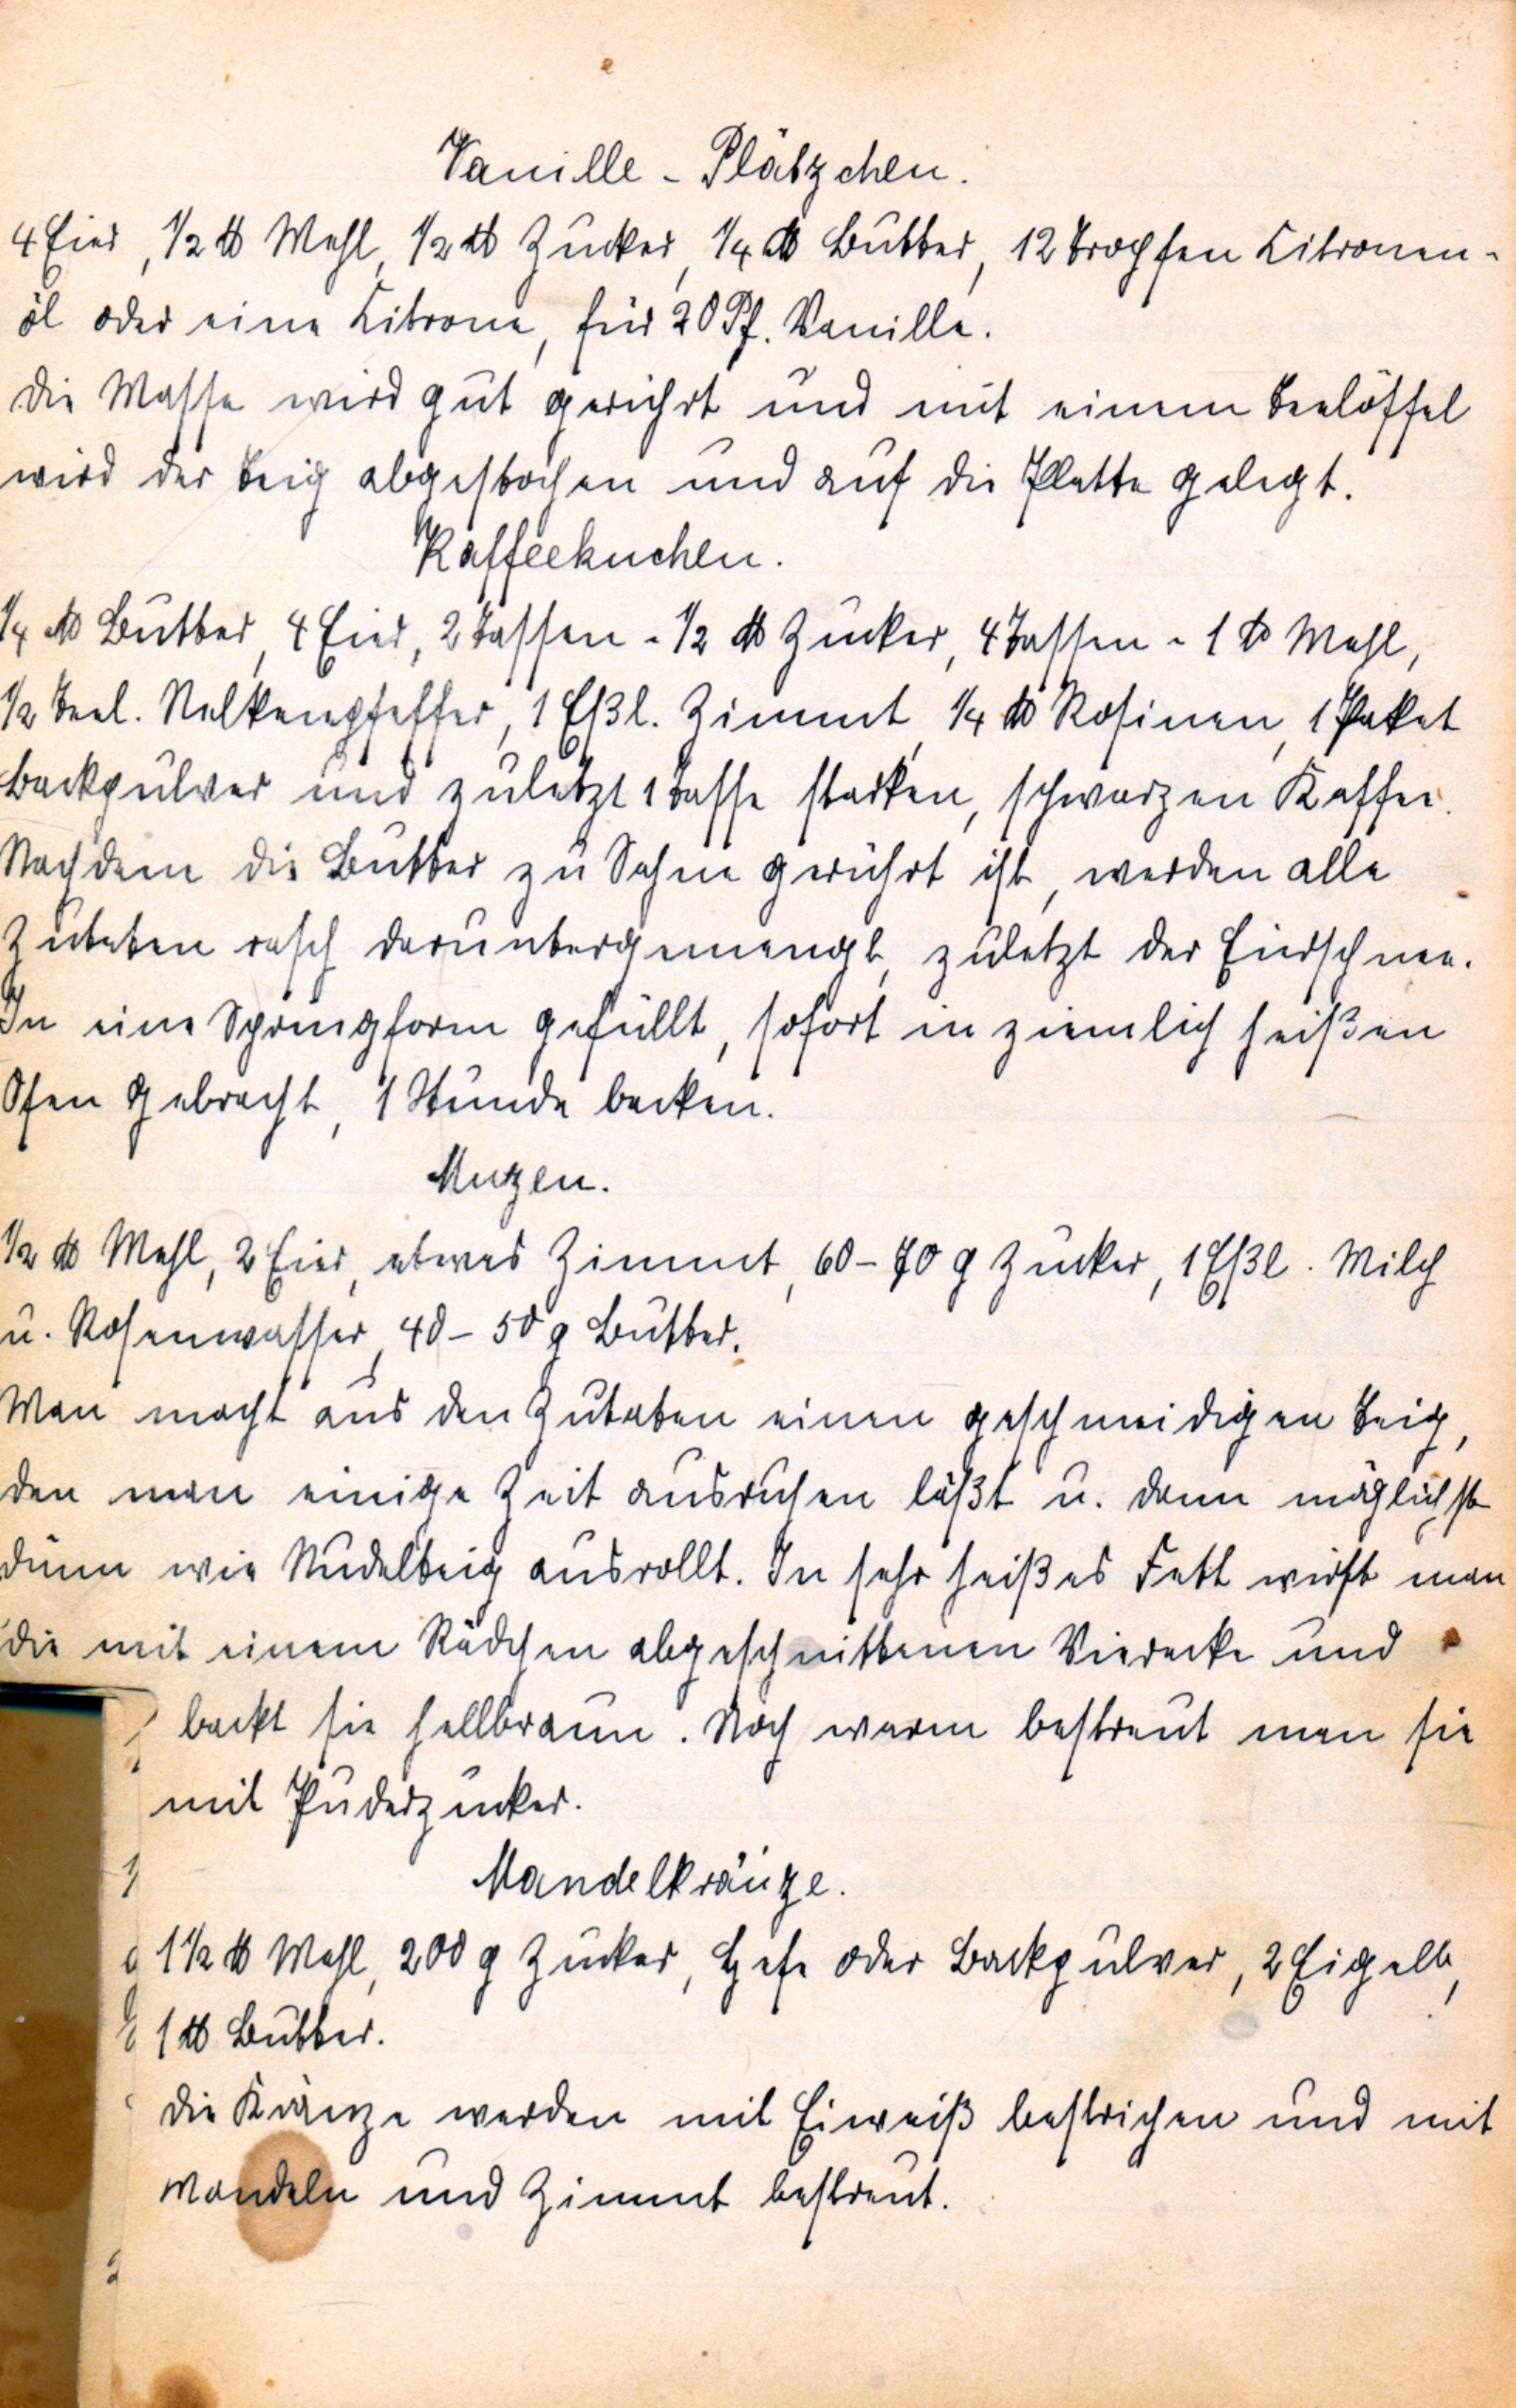 Vanille - Plätzchen.
4 Eier, 1/2 ℔ Mehl, 1/2 ℔ Zucker, 1/4 ℔ Butter, 12 Tropfen Citronen-
öl oder eine Citrone, für 20 Pf. Vanille.
Die Masse wird gut gerührt und mit einem Teelöffel
wird der Teig abgestochen und auf die Platte gelegt.
Kaffeekuchen.
1/4 ℔ Butter, 4 Eier, 2 Tassen - 1/2 ℔ Zucker, 4 Tassen - 1 ℔ Mehl,
1/2 Teel. Nelkenpfeffer, 1 Eßl. Zimmt, 1/4 ℔ Rosinen, 1 Paket
Backpulver und zuletzt 1 Tasse starken, schwarzen Kaffee.
Nachdem die Butter zu Sahne gerührt ist, werden alle
Zutaten rasch daruntergemengt, zuletzt der Eierschnee.
In eine Springform gefüllt, sofort in ziemlich heißen
Ofen gebracht, 1 Stunde backen.
Muzen.
1/2 ℔ Mehl, 2 Eier, etwas Zimmt, 60 - 70 g Zucker, 1 Eßl. Milch
u. Rosenwasser, 40 - 50 g Butter.
Man macht aus den Zutaten einen geschmeidigen Teig,
den man einige Zeit ausruhen läßt u. dann möglichst
dünn wie Nudelteig ausrollt. In sehr heißes Fett wirft man
die mit einem Rädchen abgeschnittenen Vierecke und
backt sie hellbraun. Noch warm bestreut man sie
mit Puderzucker.
Mandelkränze.
1 1/2 ℔ Mehl, 200 g Zucker, Hefe oder Backpulver, 2 Eigelb,
1 ℔ Butter.
Die Kränze werden mit Eiweiß bestrichen und mit
Mandeln und Zimmt bestreut.